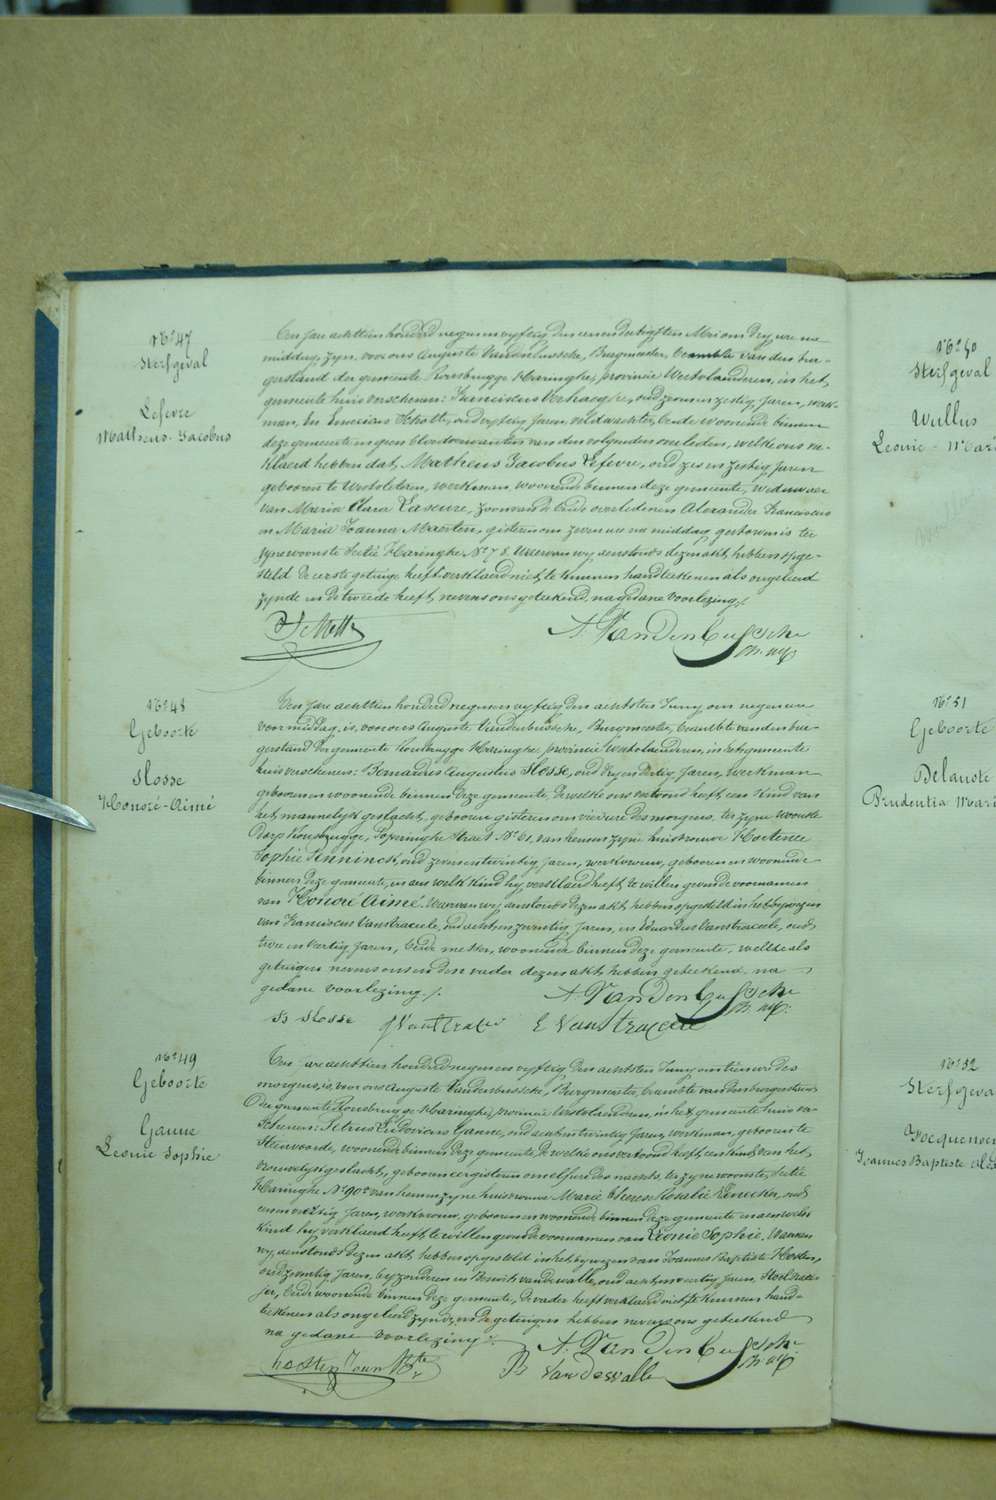 N° 47
Sterfgeval
Lefevre
Matheus-Jacobus
Ten jare achttien honderd negen en vyftig den eenendertigsten Mei om dry ure na
middag, zyn voor ons Auguste Vandenbussche, Burgmeester, beambte van den bur-
gerstand der gemeente Rousbrugge Haringhe, provincie Westvlaanderen, in het
gemeente huis verschenen: Franciscus Verhaeghe, oud zeven en zestig Jaren, werk-
man, En Emericus Schotte, oud vyftig Jaren veldwachter, beide woonende binnen
deze gemeente en geen bloedverwanten van den volgenden overleden, welke ons ver-
klaerd hebben dat, Matheus Jacobus Lefevre, oud zes en zestig Jaren
geboren te Westvleteren, werkman, woonende binnen deze gemeente, weduwaer
van Maria Clara Lascure, zoon van de beide overledenen Alexander Franciscus
en Maria Joanna Maerten, gisteren om zeven ure na middag gestorven is ter
zyne woonste sectie Haringhe N° 78. Waervan wy aenstonds dezen akt hebben opge-
steld. De eerste getuige heeft verklaerd niet te kunnen handteekenen als ongeleerd
zynde en de tweede heeft nevens ons geteekend, na gedane voorlezing ./.
Schotte
A. Vandenbussche
N° 48
Geboorte
Slosse
Honoré-Aimé
Ten jare achttien honderd negen en vyftig den achtsten Juny om negen ure
voormiddag, is, voor ons Auguste Vandenbussche, Burgmeester, beambte van den bur-
gerstand der gemeente Rousbrugge Haringhe, provincie Westvlaanderen, in het gemeente
huis verschenen: Bernardus Augustus Slosse, oud dry en dertig Jaren, werkman
geboren en woonende binnen deze gemeente, dewelke ons vertoond heeft een kind van
het mannelyk geslacht, geboren gisteren om vier ure des morgens, ter zyne woonste
Dorp Rousbrugge, Poperinghe straet N° 61, van hem en zyne huisvrouw Hortence
Sophie, oud zeven en twintig jaren, werkvrouw, geboren en woonende
binnen deze gemeente, en aen welk kind hy verklaerd heeft te willen geven de voornamen
van Honoré Aimé. Waervan wy aenstonds dezen akt hebben opgesteld in het bywezen
van Franciscus Vanstraceele, oud acht en twintig Jaren, en Eduardus Vanstraceele, oud
twee en veertig Jaren, beide metser, woonende binnen deze gemeente, welke als
getuigen nevens ons en den vader dezen akt hebben geteekend na
gedane voorlezing ./.
A. Vandenbussche
B Slosse
E Vanstraceele
N° 49
Geboorte
Ganne
Leonie Sophie
Ten jare achttien honderd negen en vyftig den achtsten Juny om tien ure des
morgens, is, voor ons Auguste Vandenbussche, Burgmeester, beambte van den burgerstand
Der gemeente Rousbrugge Haringhe, provincie Westvlaanderen, in het gemeente huis ver-
schenen: Petrus Ludovicus Ganne, oud acht en twintig Jaren, werkman, geboren te
Steenvoorde, woonende binnen deze gemeente, dewelke ons vertoond heeft een kind van het
vrouwelyk geslacht, geboren eergisteren om elf ure des nachts, ter zyne woonste, sectie
Haringhe N° 90 van hem en zyne huisvrouw Marie Therese Rosalie, oud
een en dertig Jaren, werkvrouw, geboren en woonende binnen deze gemeente en aen welk
kind hy verklaerd heeft te willen geven de voornamen van Leonie Sophie, Waervan
wy aenstonds dezen akt hebben opgesteld in het bywezen van Joannes Baptiste Hosten,
oud twintig Jaren, byzonderen en Benoit Vandewalle, oud acht en veertig Jaren, Stoeldraei-
jer, beide woonende binnen deze gemeente, de vader heeft verklaerd niet te kunnen hand-
teekenen als ongeleerd zynde, en de getuigen hebben nevens ons geteekend
na gedane voorlezing ./.
A. Vandenbussche
Hosten Jean Bte
B Vandewalle
N° 50
Sterfgeval
Wullus
Leonie-Mari
N° 51
Geboorte
Prudentia Mari
N° 52
Sterfgeva
Joannes Baptiste